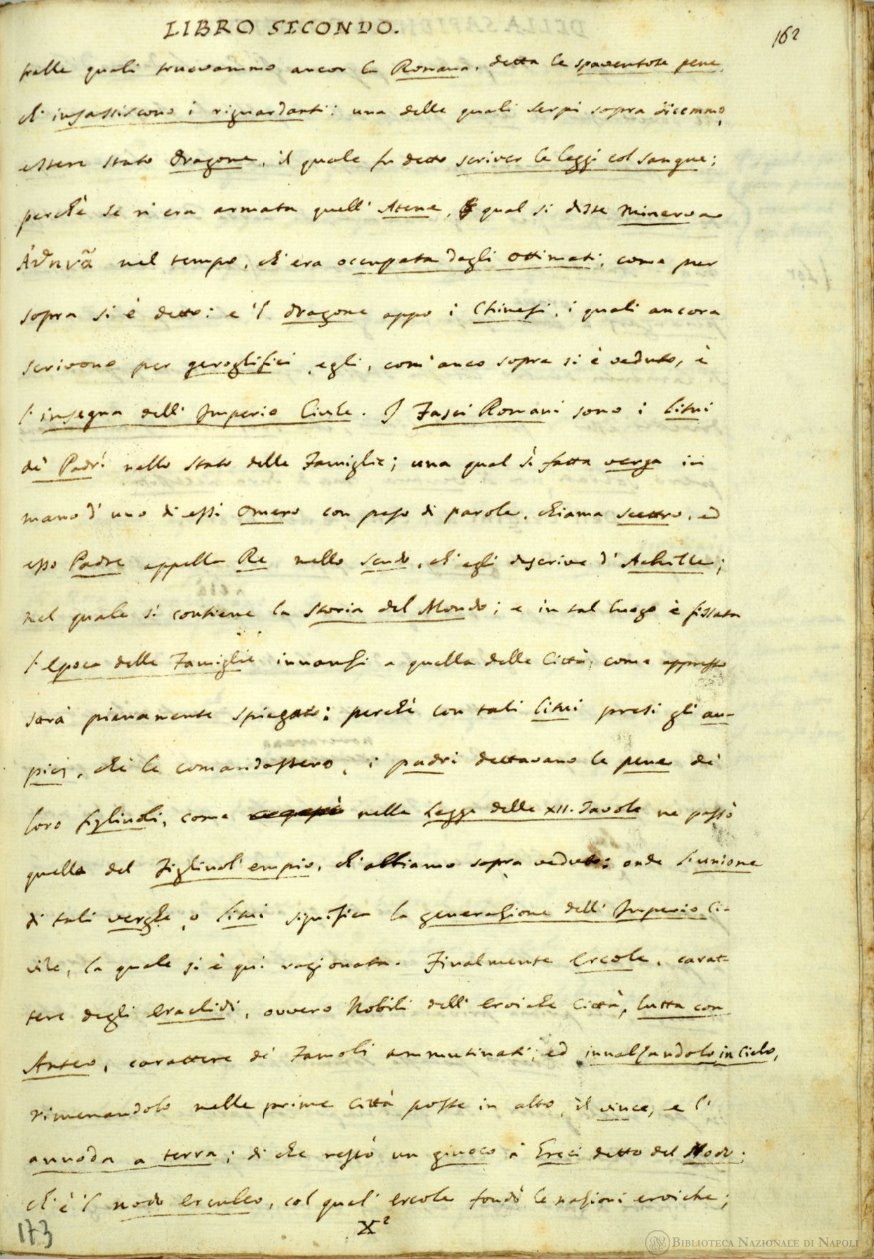 LIBRO SECONDO.
162
tralle quali truovammo ancor la Romana, detta le spaventose pene,
ch' insassiscono i riguardanti: una delle quali serpi sopra dicemmo,
essere stato Dragone, il quale fu detto scriver le leggi col sangue;
perchè se n'era armata quell' Atene, qual si disse Minerva
nel tempo, ch' era occupata dagli Ottimati, come pur
sopra si è detto: e 'l dragone appo i Chinesi, i quali ancora
scrivono per geroglifici, egli, com' anco sopra si è veduto, è
l'insegna dell' Imperio Civile. I Fasci Romani sono i litui
de' Padri nello stato delle Famiglie; una qual sì fatta verga in
mano d' uno di essi Omero con peso di parole, chiama scettro, ed
esso Padre appella Re nello scudo, ch' egli descrive d' Achille;
nel quale si contiene la storia del Mondo; e in tal luogo è fissata
l'epoca delle Famiglie innanzi a quella delle Città, come appresso
sarà pienamente spiegato: perchè con tali litui presi gli au-
picj, che le comandassero, i padri dettavano le pene de'
loro figliuoli, come nella Legge delle XII. Tavole ne passò
quella del Figliuol' empio, ch' abbiamo sopra veduto: onde l'unione
di tali verghe, o litui significa la generazione dell' Imperio Ci-
vile, la quale si è qui ragionata. Finalmente Ercole, carat-
tere degli Eraclidi, ovvero Nobili dell' eroiche Città, lutta con
Anteo, carattere de' Famoli ammutinati; ed innalzandolo in Cielo,
rimenandolo nelle prime Città poste in alto, il vince, e l'
annoda a terra; di che restò un giuoco a' Greci detto del Nodo:
ch' è 'l nodo erculeo, col qual' Ercole fondò le nazioni eroiche;
173
X²
BIBLIOTECA NAZIONALE DI NAPOLI